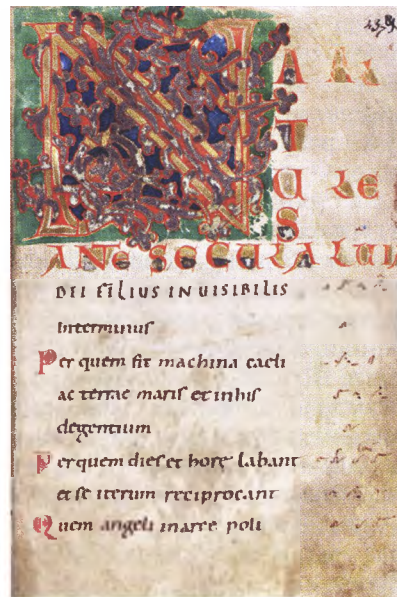 N A
T
U
S
ANTE SECULA
DEI FILIUS INUISIBILIS
interminus
Per quem fit machina caeli
ac terrae maris et inhis
degentium
Per quem dies et hore labant
et se iterum reciprocant
Quem angeli inarce poli